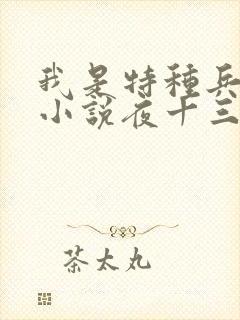 我是特種兵
小說夜十三
茶太丸